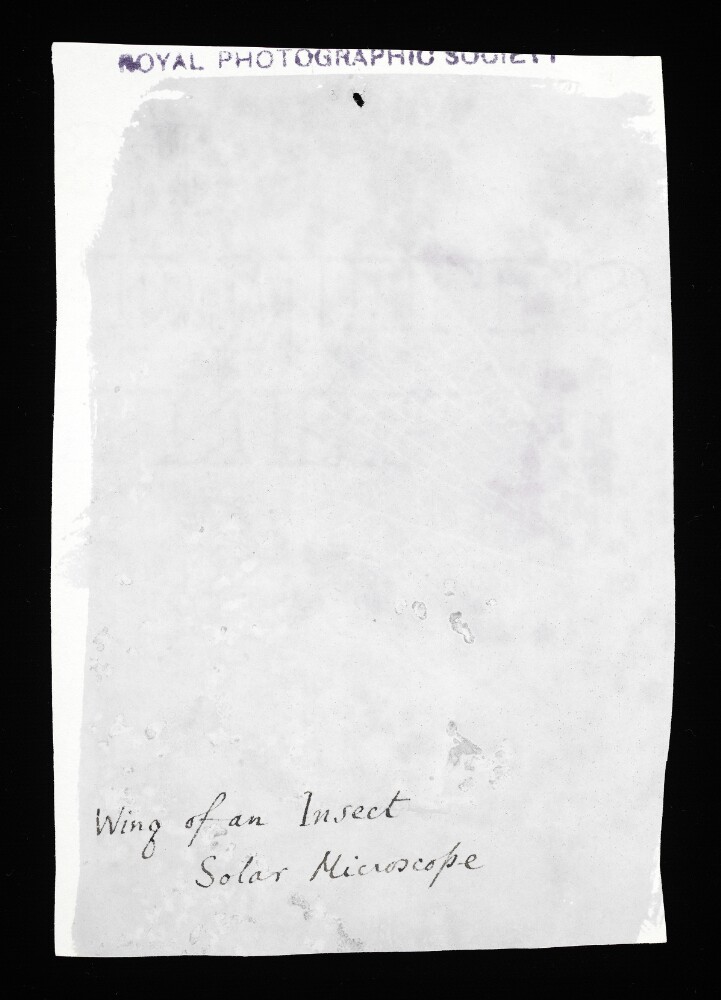 ROYAL PHOTOGRAPHIC SOCIETY
Wing of an Insect
Solar Microscope